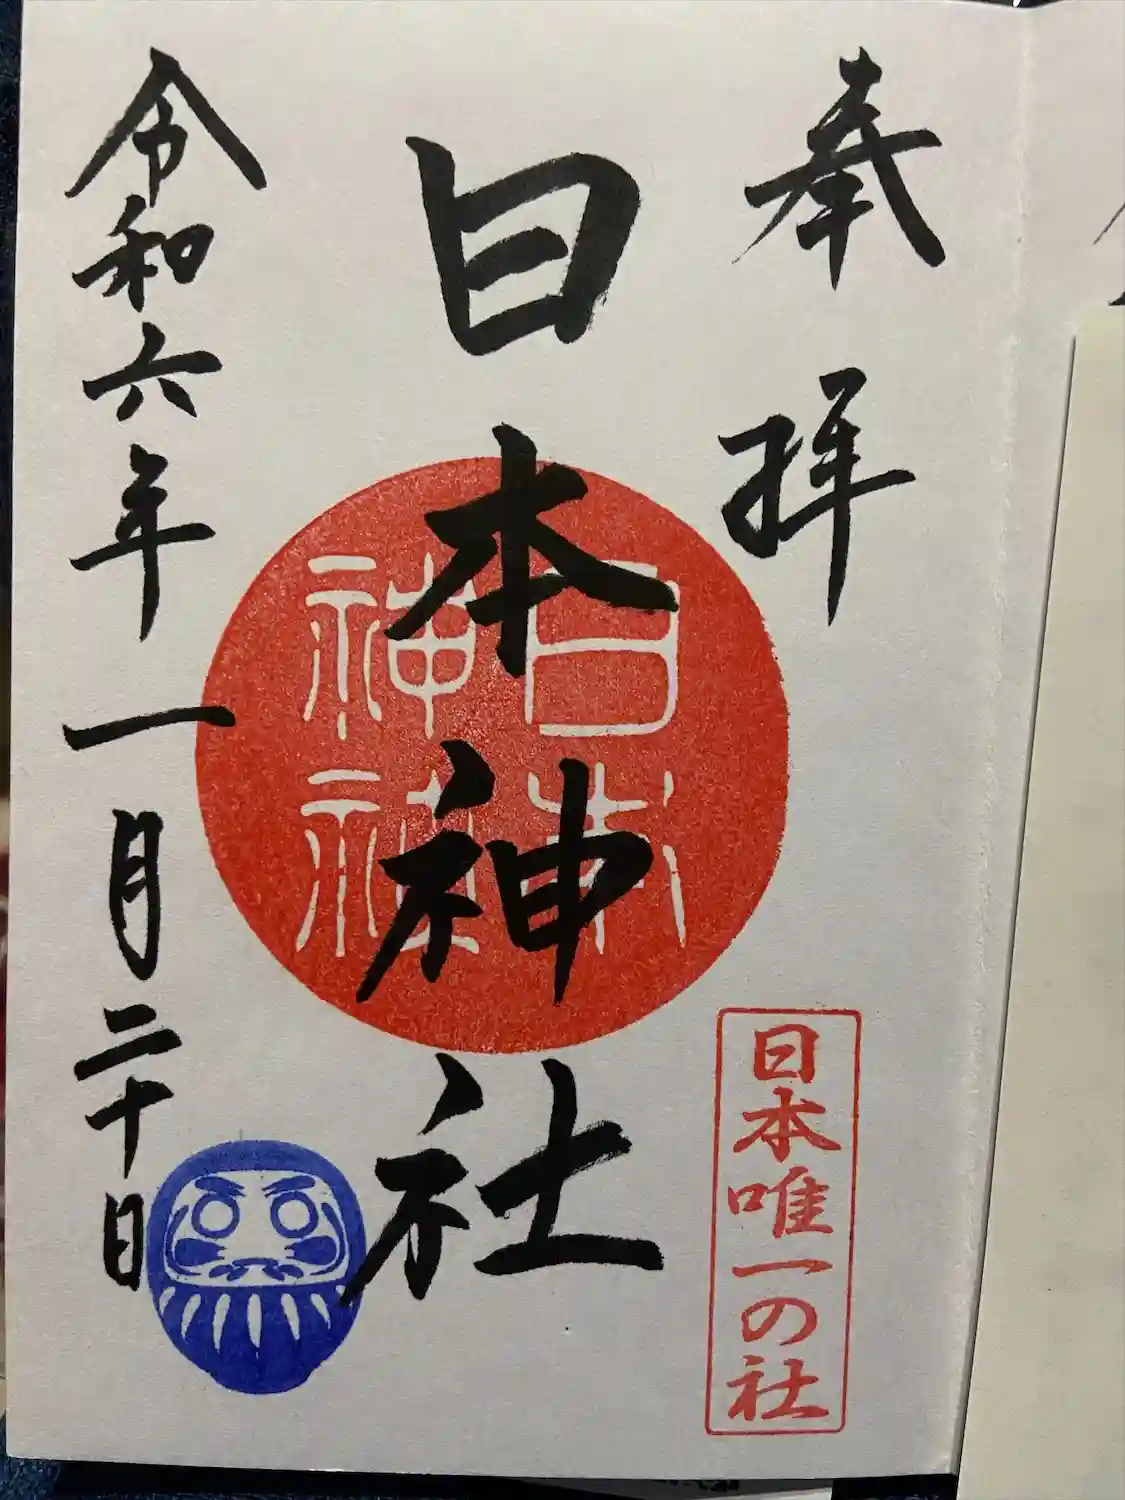 奉拝
日本唯一の社
日本神社
日本
神社
令和六年一月二十日